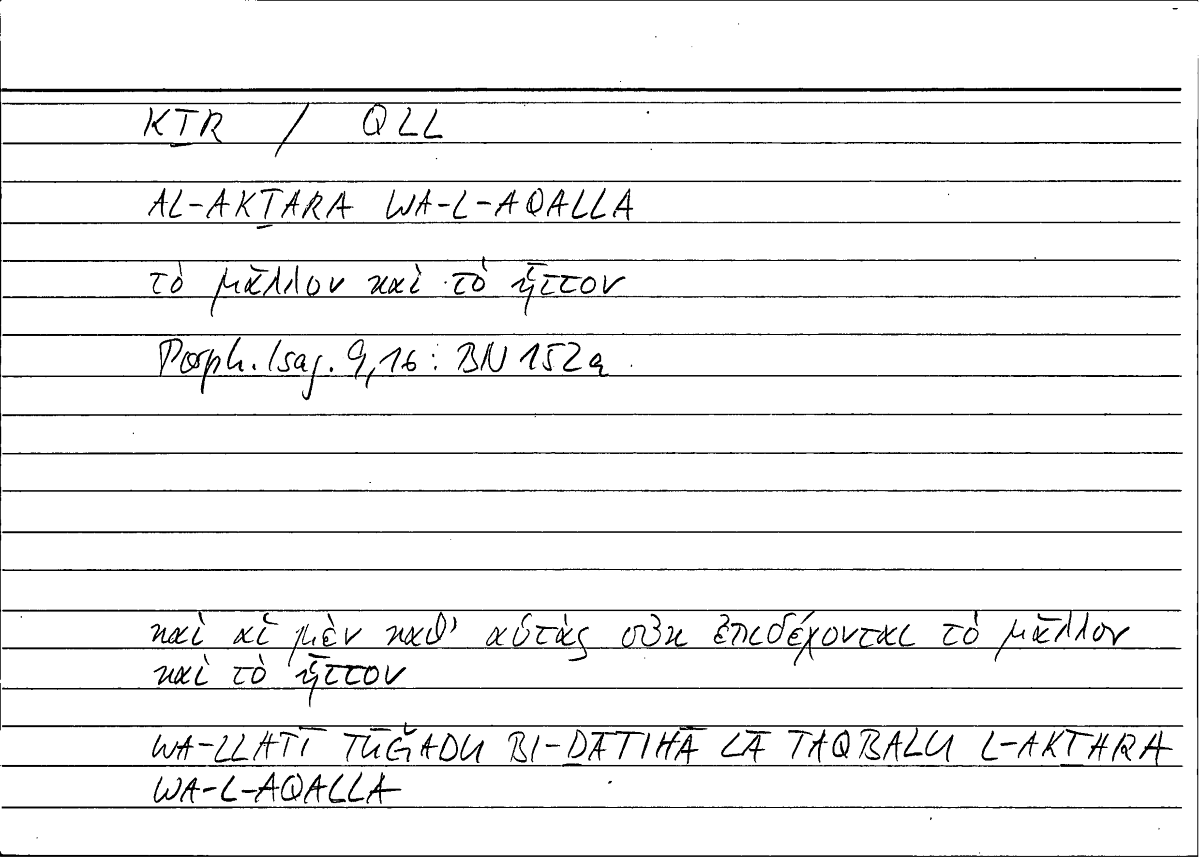 KṮR / QLL
AL-AKṮARA WA-L-AQALLA
τὸ μᾶλλον καὶ τὸ ἧττον
Porph. Isag. 9,16: BN 152a
καὶ αἱ μὲν καθ’ αὑτὰς οὐκ ἐπιδέχονται τὸ μᾶλλον
καὶ τὸ ἧττον
WA-LLATĪ TŪǦADU BI-ḎĀTIHĀ LĀ TAQBALU L-AKṮARA
WA-L-AQALLA